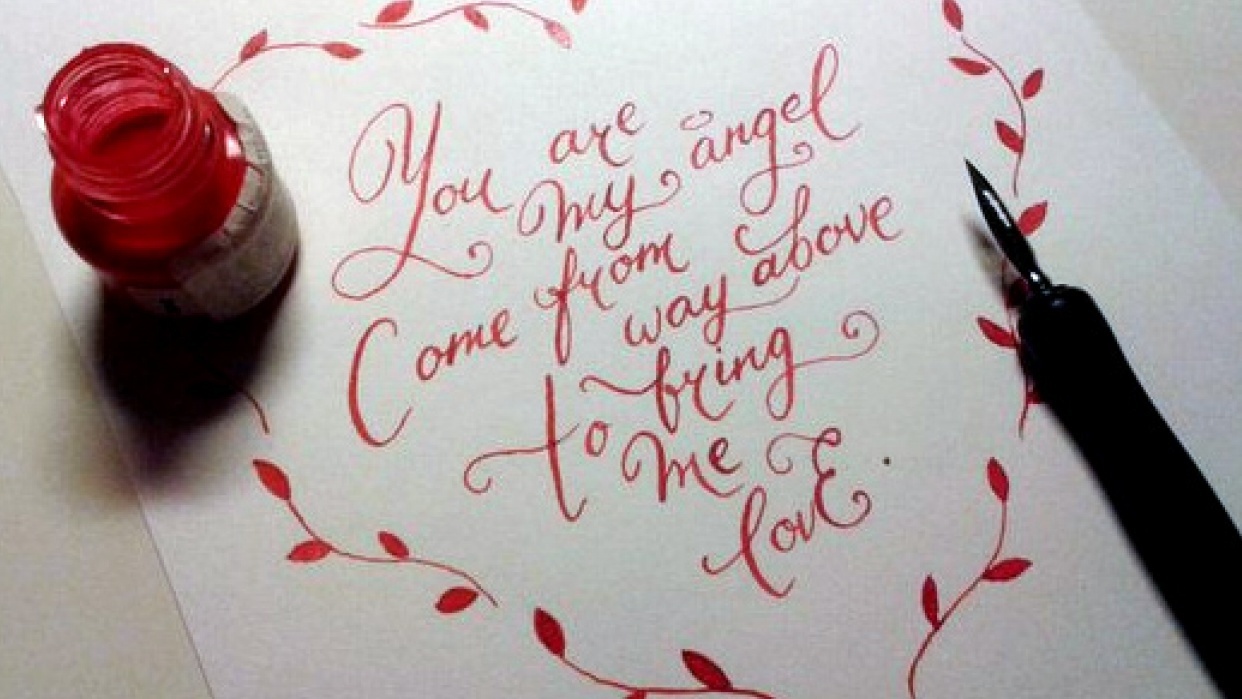 You are my angel
Come from way above
to bring me
lovE.